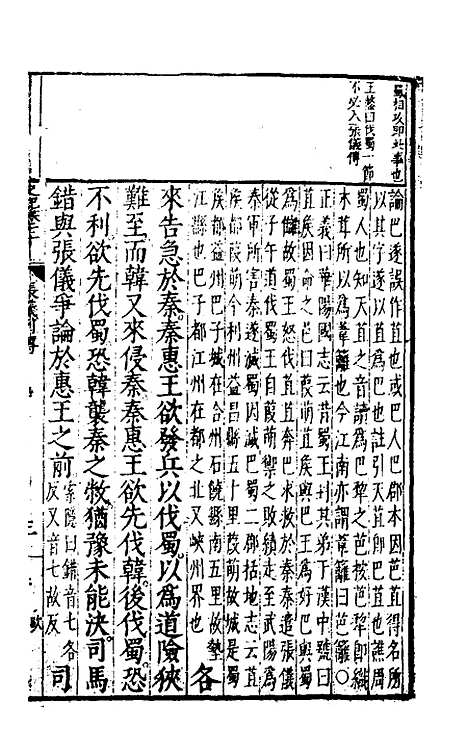 蜀相攻即此事也
王楙曰伐蜀一節
不必入張儀傳
論巴遂誤作苴也或巴人巴郡本因芭苴得名所
以其字遂以苴為巴也註引天苴即巴苴也譙周
蜀人也知天苴之音讀為芭犂之芭按芭犂即織
木葺所以為葦籬也今江南亦謂葦籬曰芭籬○
正義曰華陽國志云昔蜀王封其弟于漢中號曰
苴侯因命之邑曰葭萌苴侯與巴王為好巴與蜀
為讎故蜀王怒伐苴苴奔巴求救於秦秦遣張儀
從子午道伐蜀蜀王自葭萌禦之敗績走至武陽為
秦軍所害秦遂滅蜀因滅巴蜀二郡括地志云苴
侯都葭萌今利州益昌縣五十里葭萌故城是蜀
侯都益州巴子城在合州石鏡縣南五里故墊
江縣也巴子都江州在都之北又峽州界也
各
來告急於秦秦惠王欲發兵以伐蜀以為道險狹
難至而韓又來侵秦秦惠王欲先伐韓後伐蜀恐
不利欲先伐蜀恐韓襲秦之敝猶豫未能決司馬
錯與張儀爭論於惠王之前
索隱曰錯音七各
反又音七故反
司
史記卷七十
張儀列傳